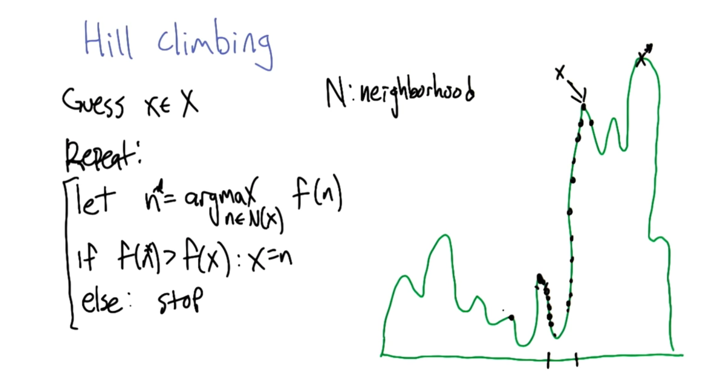 Hill climbing
Guess x ∈ X
N: neighborhood
Repeat:
let n* = argmax f(n)
n∈N(x)
if f(n*) > f(x): x = n
else: stop
x
x*